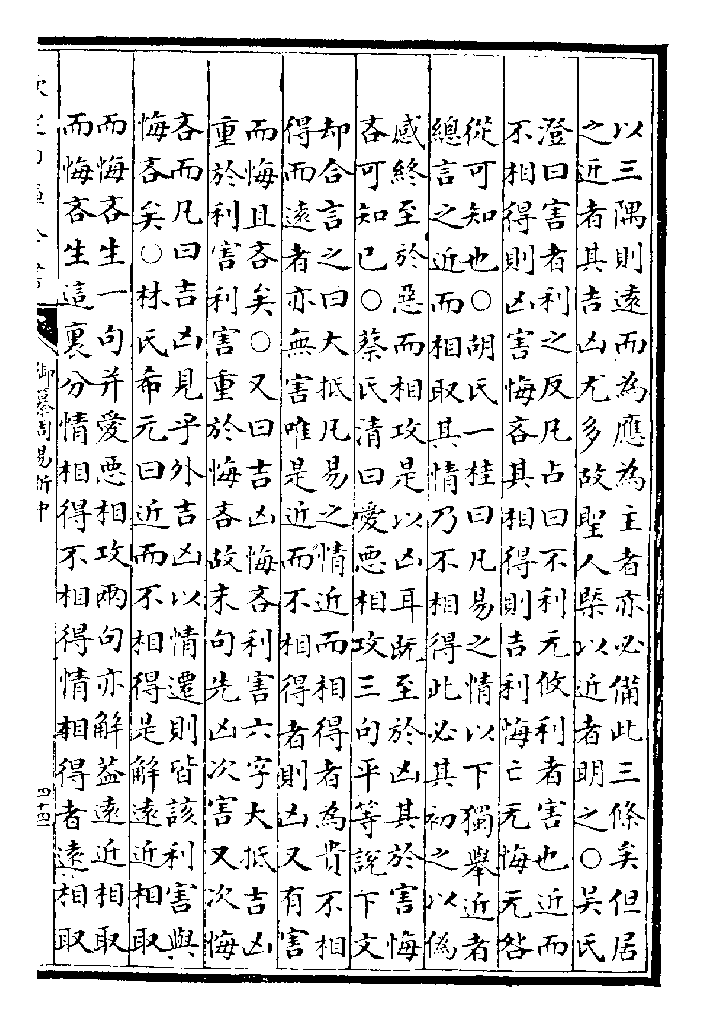 以三隅則遠而為應為主者亦必備此三條矣但居
之近者其吉凶尤多故聖人槩以近者明之○吳氏
澄曰害者利之反凡占曰不利无攸利者害也近而
不相得則凶害悔吝其相得則吉利悔亡无悔无咎
從可知也○胡氏一桂曰凡易之情以下獨舉近者
總言之近而相取其情乃不相得此必其初之以偽
感終至於惡而相攻是以凶耳既至於凶其於害悔
吝可知已○蔡氏清曰愛惡相攻三句平等說下文
却合言之曰大抵凡易之情近而相得者為貴不相
得而遠者亦無害唯是近而不相得者則凶又有害
而悔且吝矣○又曰吉凶悔吝利害六字大抵吉凶
重於利害利害重於悔吝故末句先凶次害又次悔
吝而凡曰吉凶見乎外吉凶以情遷則皆該利害與
悔吝矣○林氏希元曰近而不相得是解遠近相取
而悔吝生一句并愛惡相攻兩句亦解益遠近相取
而悔吝生這裏分情相得不相得情相得者遠相取
御纂周易折中
四十四